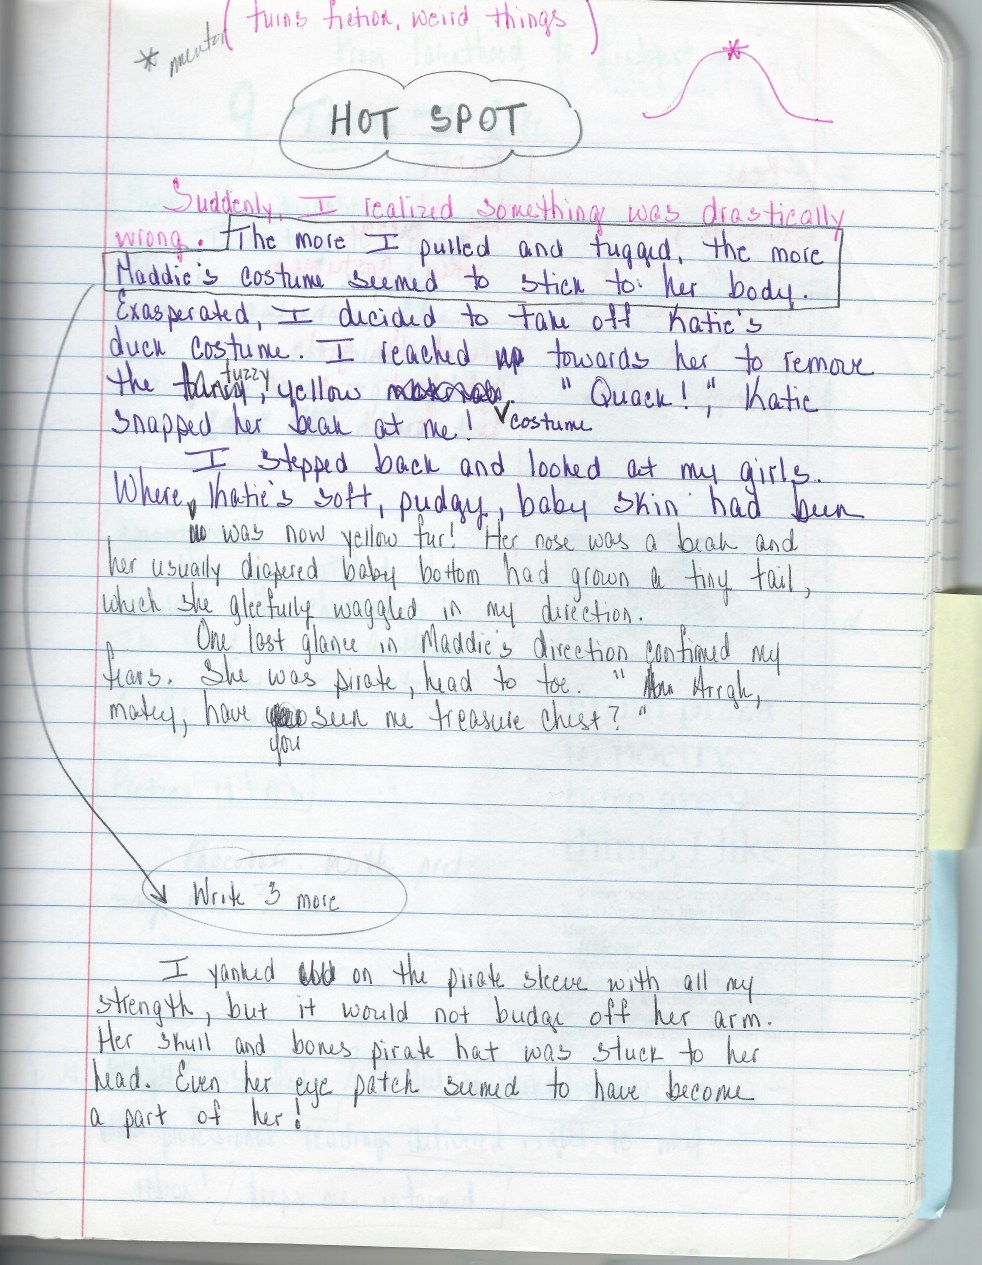 (turns fiction, weird things)
* mentor
HOT SPOT
Suddenly, I realized something was drastically
wrong. The more I pulled and tugged, the more
Maddie's costume seemed to stick to her body.
Exasperated, I decided to take off Katie's
duck costume. I reached up towards her to remove
the fuzzy, yellow costume. "Quack!", Katie
snapped her beak at me!
I stepped back and looked at my girls.
Where Katie's soft, pudgy, baby skin had been
was now yellow fur! Her nose was a beak and
her usually diapered baby bottom had grown a tiny tail,
which she gleefully waggled in my direction.
One last glance in Maddie's direction confimed my
fears. She was pirate, head to toe. "Arrgh,
matey, have you seen me treasure chest?"
Write 3 more
I yanked on the pirate sleeve with all my
strength, but it would not budge off her arm.
Her skull and bones pirate hat was stuck to her
head. Even her eye patch seemed to have become
a part of her!